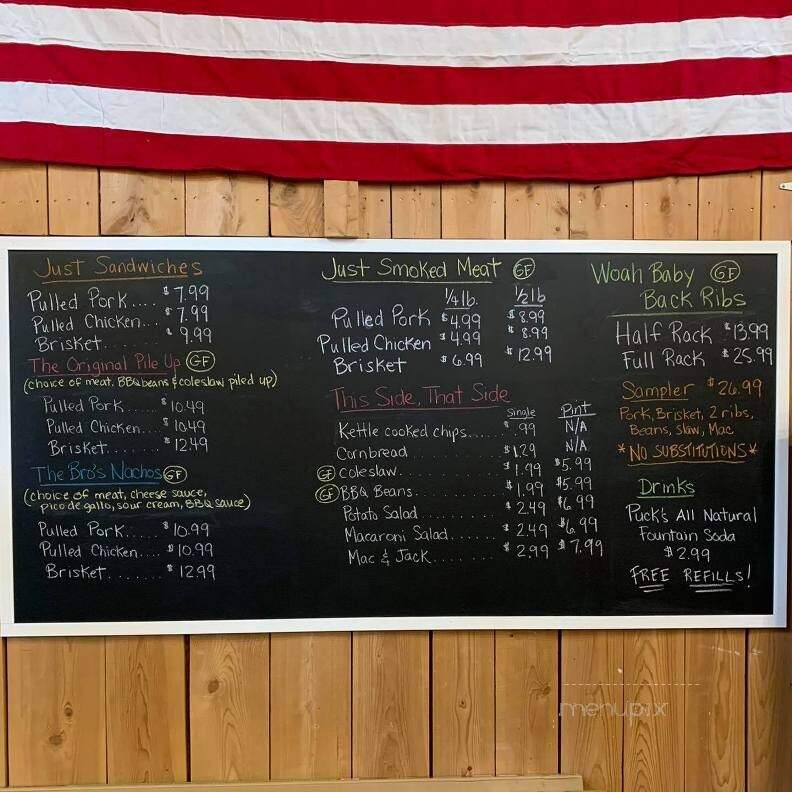 Just Sandwiches
Pulled Pork.... $7.99
Pulled Chicken... $7.99
Brisket........ $9.99
The Original Pile Up GF
(choice of meat, BBQ beans & coleslaw piled up)
Pulled Pork..... $10.49
Pulled Chicken.... $10.49
Brisket........ $12.49
The Bro's Nachos GF
(choice of meat, cheese sauce,
pico de gallo, sour cream, BBQ sauce)
Pulled Pork..... $10.99
Pulled Chicken.... $10.99
Brisket........ $12.99
Just Smoked Meat GF
1/4 lb. 1/2 lb
Pulled Pork $4.99 $8.99
Pulled Chicken $4.99 $8.99
Brisket $6.99 $12.99
This Side, That Side
Single Pint
Kettle cooked chips...... $.99 N/A
Cornbread............ $1.29 N/A
GF Coleslaw............ $1.99 $5.99
GF BBQ Beans.......... $1.99 $5.99
Potato Salad......... $2.49 $6.99
Macaroni Salad....... $2.49 $6.99
Mac & Jack.......... $2.99 $7.99
Woah Baby GF
Back Ribs
Half Rack $13.99
Full Rack $25.99
Sampler $26.99
Pork, Brisket, 2 ribs,
Beans, Slaw, Mac
*NO SUBSTITUTIONS*
Drinks
Puck's All Natural
Fountain Soda
$2.99
FREE REFILLS!
menupix